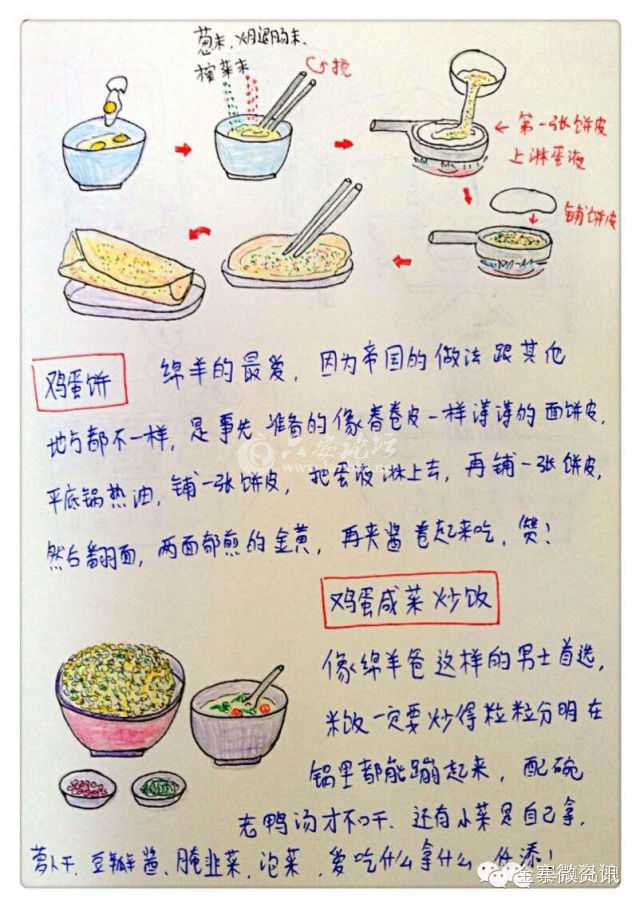 葱末、火腿肠末、
榨菜末
搅
第一张饼皮
上淋蛋液
铺饼皮
鸡蛋饼
绵羊的最爱，因为帝国的做法跟其他
地方都不一样，是事先准备的像春卷皮一样薄薄的面饼皮，
平底锅热油，铺一张饼皮，把蛋液淋上去，再铺一张饼皮，
然后翻面，两面都煎的金黄，再夹酱卷起来吃，赞！
六安论坛
鸡蛋咸菜炒饭
像绵羊爸这样的男士首选，
米饭一定要炒得粒粒分明在
锅里都能蹦起来，配碗
老鸭汤才不干、还有小菜是自己拿，
萝卜干、豆瓣酱、腌韭菜、泡菜，爱吃什么拿什么，任添！
金寨微资讯